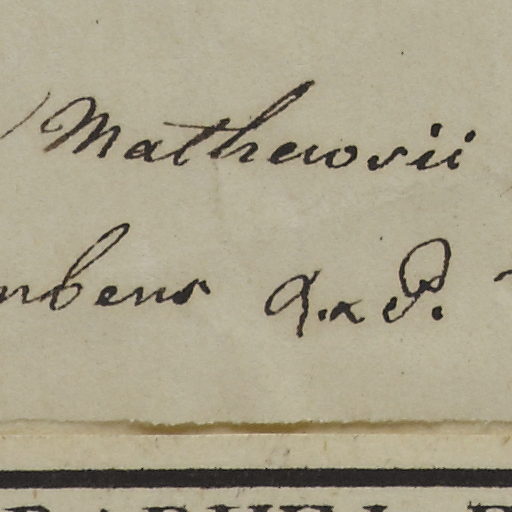 Mathewsii
mbens R. & P.